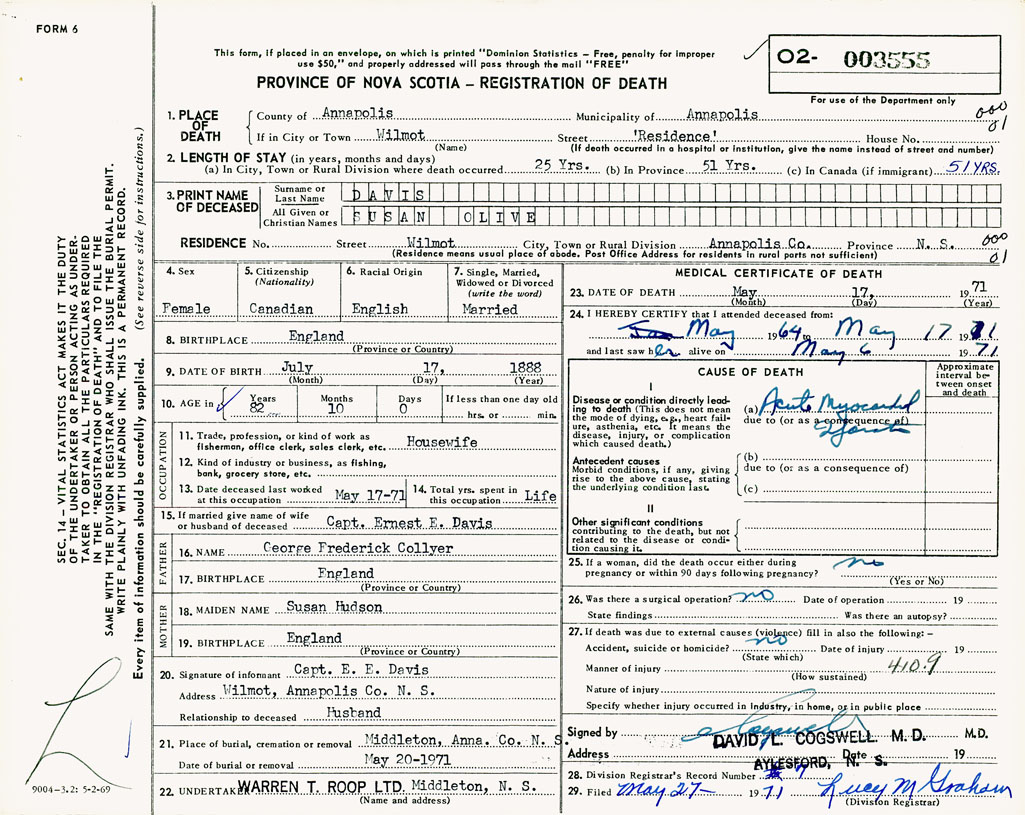 FORM 6
This form, if placed in an envelope, on which is printed "Dominion Statistics – Free, penalty for improper
use $50," and properly addressed will pass through the mail "FREE"
PROVINCE OF NOVA SCOTIA – REGISTRATION OF DEATH
O2- 003555
For use of the Department only
SEC. 14 – VITAL STATISTICS ACT MAKES IT THE DUTY
OF THE UNDERTAKER OR PERSON ACTING AS UNDER-
TAKER TO OBTAIN ALL THE PARTICULARS REQUIRED
IN THE "REGISTRATION OF DEATH" AND TO FILE THE
SAME WITH THE DIVISION REGISTRAR WHO SHALL ISSUE THE BURIAL PERMIT.
WRITE PLAINLY WITH UNFADING INK. THIS IS A PERMANENT RECORD.
Every item of information should be carefully supplied. (See reverse side for instructions.)
9004-3.2: 5-2-69
1. PLACE OF DEATH
County of Annapolis Municipality of Annapolis
000
01
If in City or Town Wilmot Street 'Residence' House No.
(Name) (If death occurred in a hospital or institution, give the name instead of street and number)
2. LENGTH OF STAY (in years, months and days)
(a) In City, Town or Rural Division where death occurred 25 Yrs. (b) In Province 51 Yrs. (c) In Canada (if immigrant) 51 YRS.
3. PRINT NAME OF DECEASED
Surname or Last Name DAVIS
All Given or Christian Names SUSAN OLIVE
RESIDENCE No. Street Wilmot City, Town or Rural Division Annapolis Co. Province N. S. 000
(Residence means usual place of abode. Post Office Address for residents in rural ports not sufficient) 01
4. Sex
Female
5. Citizenship
(Nationality)
Canadian
6. Racial Origin
English
7. Single, Married,
Widowed or Divorced
(write the word)
Married
8. BIRTHPLACE England
(Province or Country)
9. DATE OF BIRTH July 17, 1888
(Month) (Day) (Year)
10. AGE in Years Months Days If less than one day old
82 10 0 hrs. or min.
OCCUPATION
11. Trade, profession, or kind of work as
fisherman, office clerk, sales clerk, etc. Housewife
12. Kind of industry or business, as fishing,
bank, grocery store, etc.
13. Date deceased last worked
at this occupation May 17-71
14. Total yrs. spent in
this occupation Life
15. If married give name of wife
or husband of deceased Capt. Ernest E. Davis
FATHER
16. NAME George Frederick Collyer
17. BIRTHPLACE England
(Province or Country)
MOTHER
18. MAIDEN NAME Susan Hudson
19. BIRTHPLACE England
(Province or Country)
20. Signature of informant Capt. E. E. Davis
Address Wilmot, Annapolis Co. N. S.
Relationship to deceased Husband
21. Place of burial, cremation or removal Middleton, Anna. Co. N. S.
Date of burial or removal May 20-1971
22. UNDERTAKER WARREN T. ROOP LTD. Middleton, N. S.
(Name and address)
MEDICAL CERTIFICATE OF DEATH
23. DATE OF DEATH May 17, 1971
(Month) (Day) (Year)
24. I HEREBY CERTIFY that I attended deceased from:
May 1964 to May 17 1971
and last saw her alive on May 6 1971
CAUSE OF DEATH
Approximate
interval be-
tween onset
and death
I
Disease or condition directly lead-
ing to death (This does not mean
the mode of dying, e.g., heart fail-
ure, asthenia, etc. It means the
disease, injury, or complication
which caused death.)
(a) Acute Myocardial
due to (or as a consequence of)
Antecedent causes
Morbid conditions, if any, giving
rise to the above cause, stating
the underlying condition last.
(b)
due to (or as a consequence of)
(c)
II
Other significant conditions
contributing to the death, but not
related to the disease or condi-
tion causing it.
25. If a woman, did the death occur either during
pregnancy or within 90 days following pregnancy? no
(Yes or No)
26. Was there a surgical operation? no Date of operation 19
State findings Was there an autopsy?
27. If death was due to external causes (violence) fill in also the following: –
Accident, suicide or homicide? no Date of injury 19
(State which)
Manner of injury 410.9
(How sustained)
Nature of injury
Specify whether injury occurred in Industry, in home, or in public place
Signed by DAVID L. COGSWELL. M. D. M.D.
Address AYLESFORD, N. S. Date 19
28. Division Registrar's Record Number 7
29. Filed May 27- 1971 Lucy M Graham
(Division Registrar)